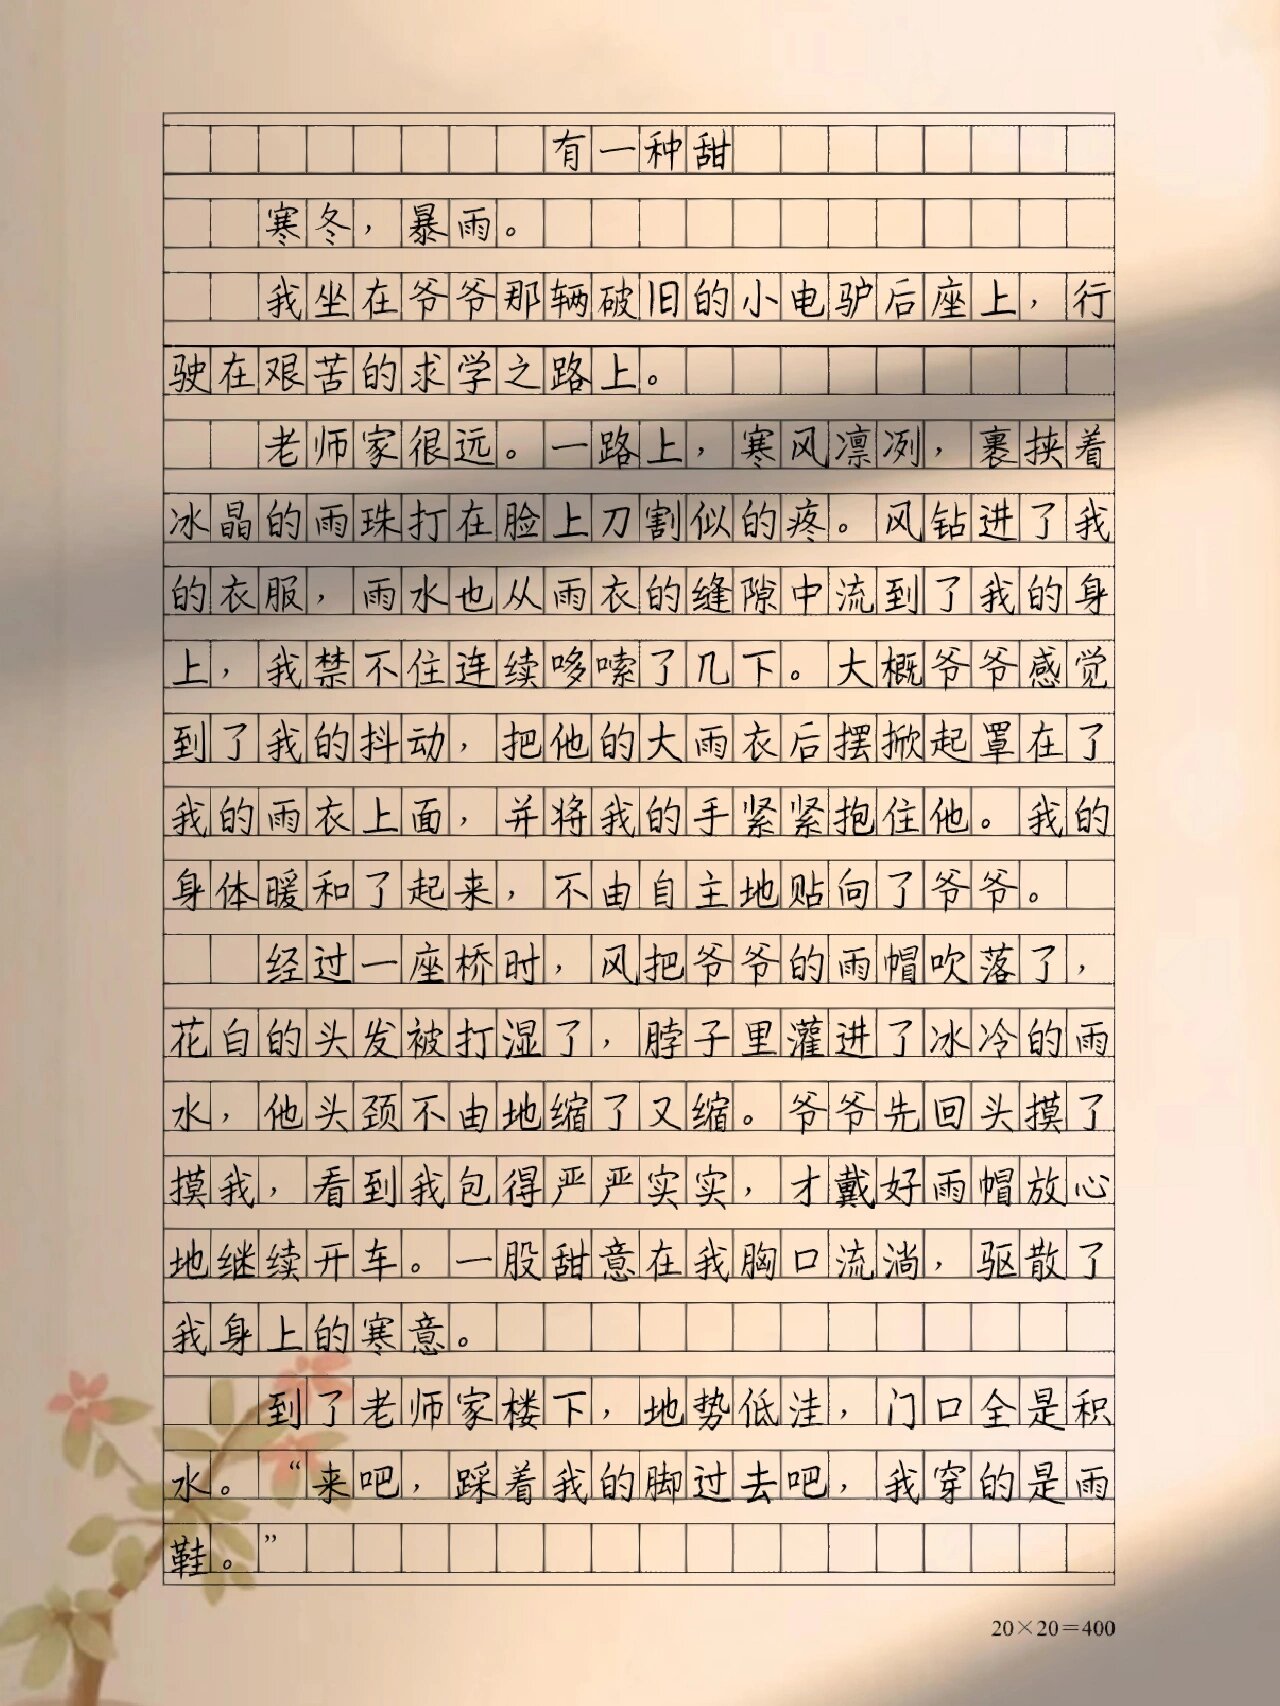 有一种甜
寒冬，暴雨。
我坐在爷爷那辆破旧的小电驴后座上，行
驶在艰苦的求学之路上。
老师家很远。一路上，寒风凛冽，裹挟着
冰晶的雨珠打在脸上刀割似的疼。风钻进了我
的衣服，雨水也从雨衣的缝隙中流到了我的身
上，我禁不住连续哆嗦了几下。大概爷爷感觉
到了我的抖动，把他的大雨衣后摆掀起罩在了
我的雨衣上面，并将我的手紧紧抱住他。我的
身体暖和了起来，不由自主地贴向了爷爷。
经过一座桥时，风把爷爷的雨帽吹落了，
花白的头发被打湿了，脖子里灌进了冰冷的雨
水，他头颈不由地缩了又缩。爷爷先回头摸了
摸我，看到我包得严严实实，才戴好雨帽放心
地继续开车。一股甜意在我胸口流淌，驱散了
我身上的寒意。
到了老师家楼下，地势低洼，门口全是积
水。“来吧，踩着我的脚过去吧，我穿的是雨
鞋。”
20×20=400